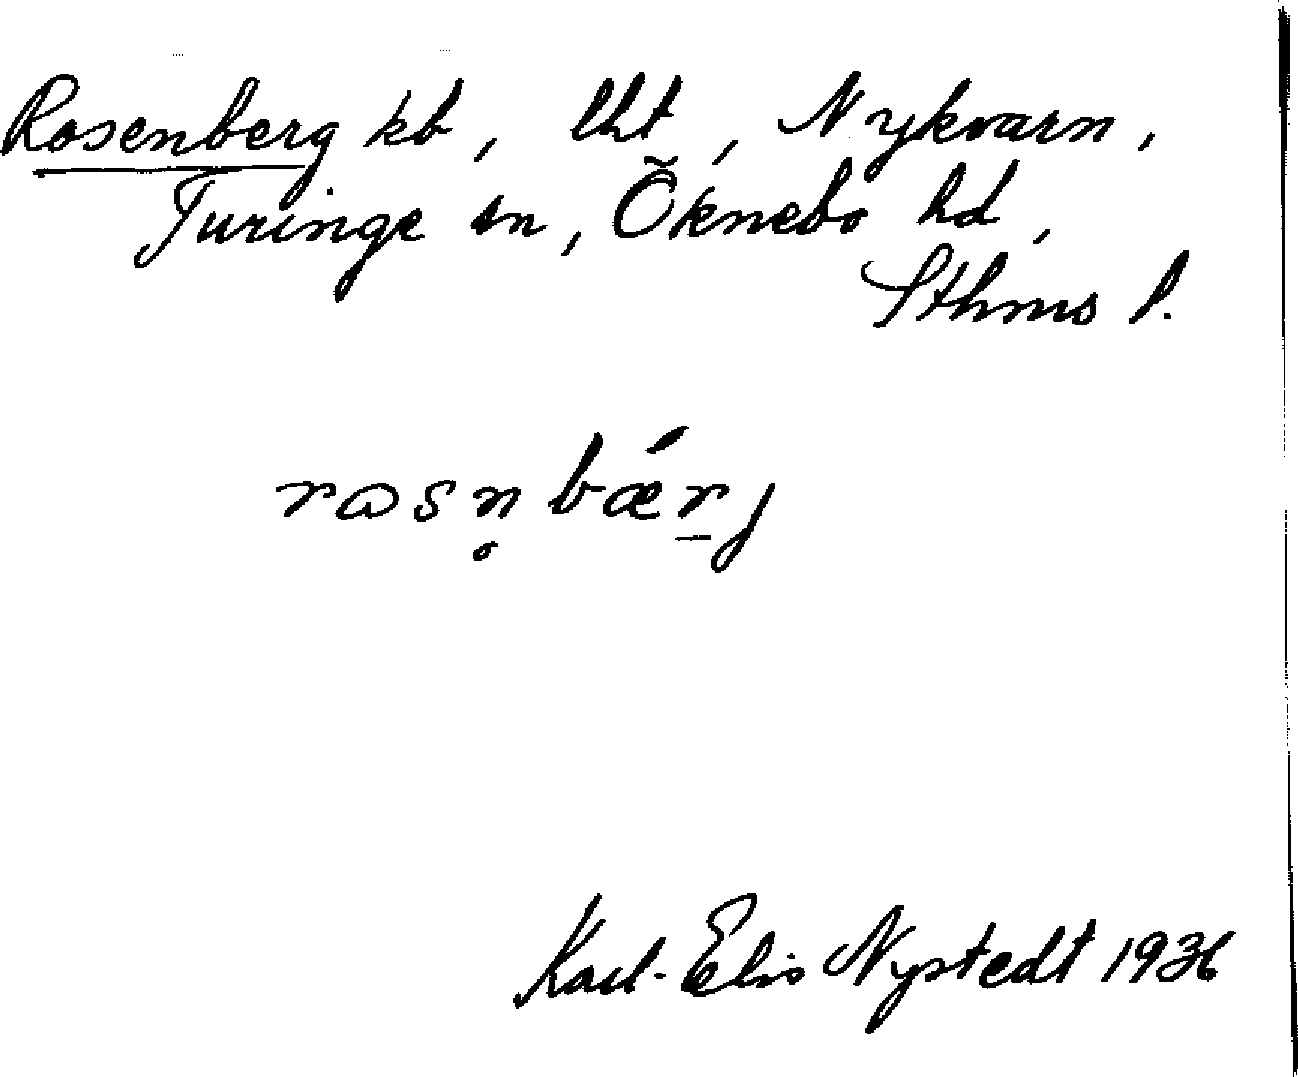 Rosenberg kb, lht, Nykvarn,
Turinge sn, Öknebo hd,
Sthms l.
rɷsn̥bǽr̠j
Karl-Elis Nystedt 1936